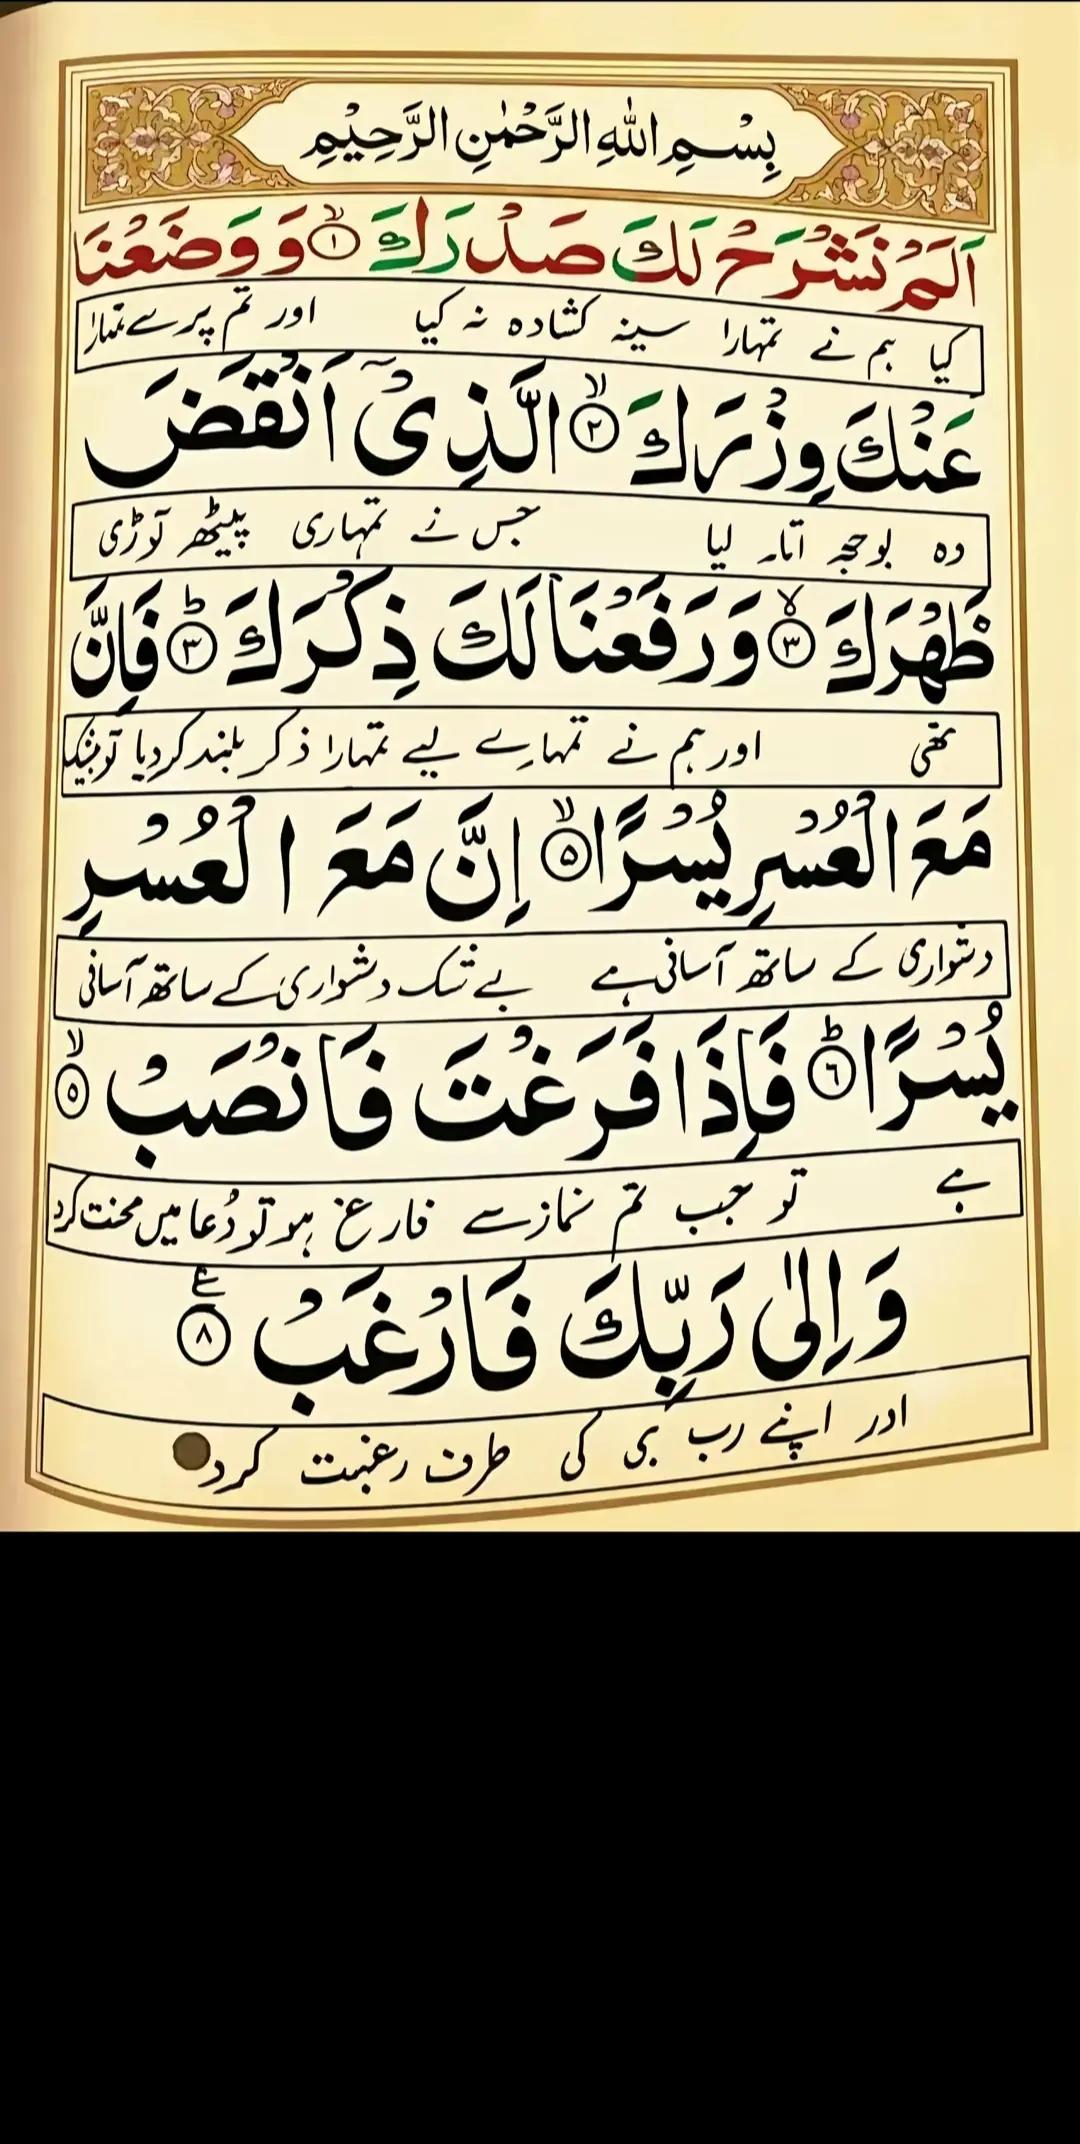 بِسْمِ اللهِ الرَّحْمٰنِ الرَّحِيْمِ
اَلَمْ نَشْرَحْ لَكَ صَدْرَكَ ۙ﴿١﴾ وَ وَضَعْنَا
کیا ہم نے تمہارا سینہ کشادہ نہ کیا اور تم پر سے تمہارا
عَنْكَ وِزْرَكَ ۙ﴿٢﴾ الَّذِیْۤ اَنْقَضَ
وہ بوجھ اتار لیا جس نے تمہاری پیٹھ توڑی
ظَهْرَكَ ۙ﴿٣﴾ وَ رَفَعْنَا لَكَ ذِكْرَكَ ؕ﴿٣﴾ فَاِنَّ
تھی اور ہم نے تمہارے لیے تمہارا ذکر بلند کردیا تو بیشک
مَعَ الْعُسْرِ يُسْرًا ۙ﴿٥﴾ اِنَّ مَعَ الْعُسْرِ
دشواری کے ساتھ آسانی ہے بے شک دشواری کے ساتھ آسانی
يُسْرًا ؕ﴿٦﴾ فَاِذَا فَرَغْتَ فَانْصَبْ ۙ﴿٥﴾
ہے تو جب تم نماز سے فارغ ہو تو دُعا میں محنت کرو
وَ اِلٰى رَبِّكَ فَارْغَبْ ﴿٨﴾ ع
اور اپنے رب ہی کی طرف رغبت کرو